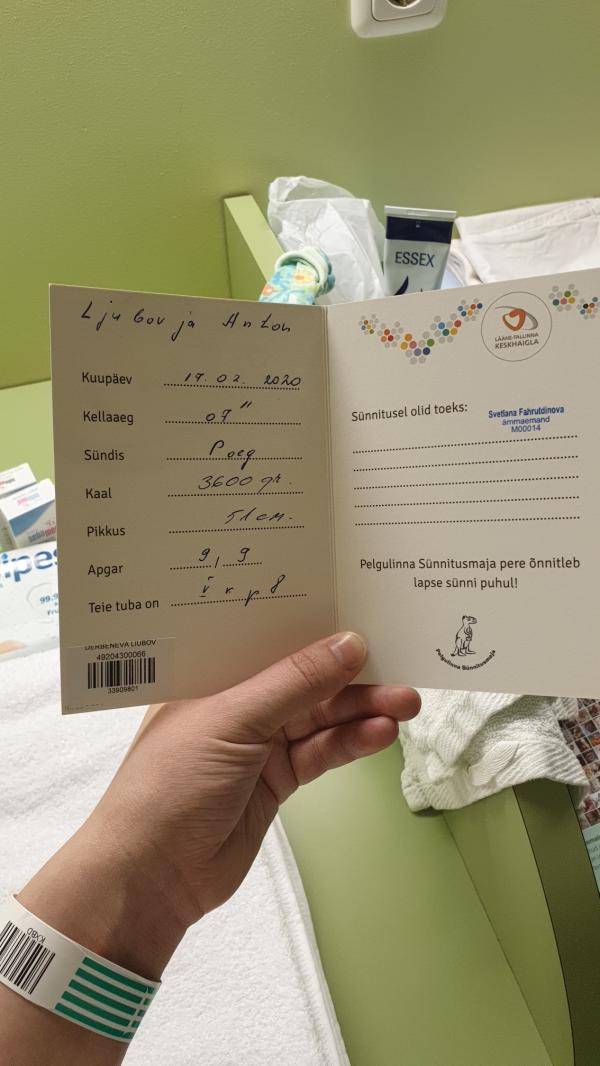 ESSEX
Ljubov ja Anton
Kuupäev 17.02. 2020
Kellaaeg 07"
Sündis Poeg
Kaal 3600 gr.
Pikkus 51 cm.
Apgar 9 / 9
Teie tuba on
DERBENEVA LIUBOV
49204300066
33909801
LÄÄNE-TALLINNA
KESKHAIGLA
Sünnitusel olid toeks:
Svetlana Fahrutdinova
ämmaemand
M00014
Pelgulinna Sünnitusmaja pere õnnitleb
lapse sünni puhul!
Pelgulinna Sünnitusmaja